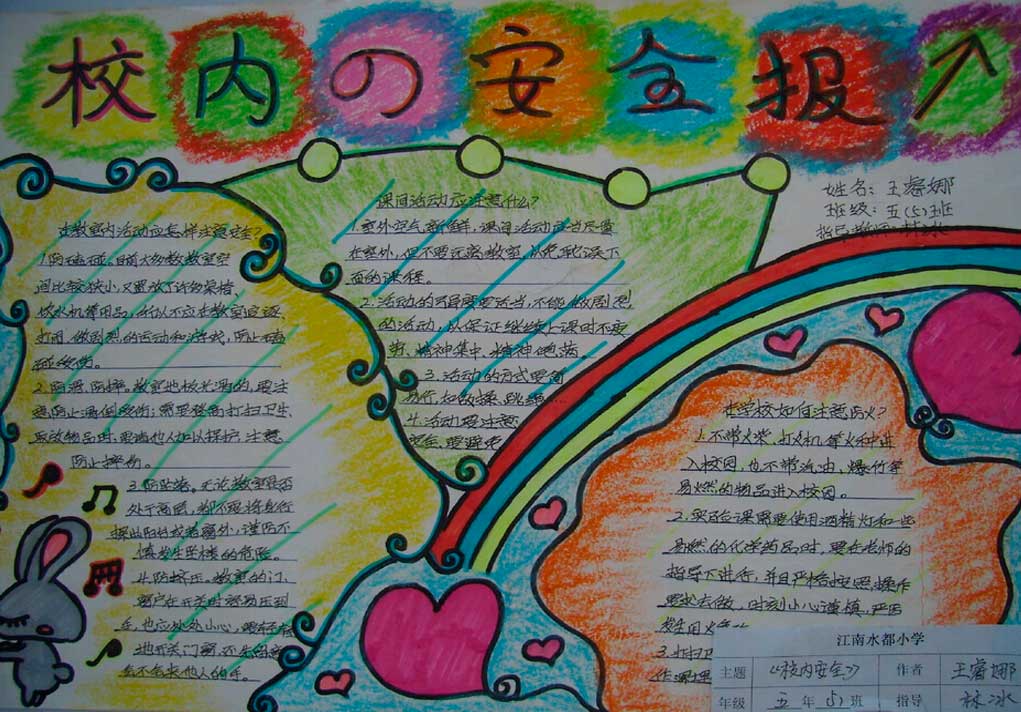 校内の安全报
姓名：王睿娜
班级：五(5)班
指导教师：林冰
在教室内活动应怎样注意安全？
1.防磕碰。目前大多数教室空
间比较狭小，又置放了许多桌椅、
饮水机等用品，所以不应在教室中追逐
打闹，做剧烈的运动和游戏，防止磕
碰受伤。
2.防滑、防摔。教室地板光滑的，要注
意防止滑倒受伤；需要登高打扫卫生、
取放物品时，要请他人加以保护，注意
防止摔伤。
3.防坠落。无论教室是否
处于高层，都不要将身体
探出阳台或者窗外，谨防不
慎发生坠楼的危险。
4.防挤压。教室的门、
窗户在开关时容易压到
手，也应处处小心，要轻轻
地开关门窗，还先留意
会不会夹他人的手。
课间活动应注意什么？
1.室外空气新鲜，课间活动应当尽量
在室外，但不要远离教室，以免耽误下
面的课程。
2.活动的强度要适当，不能做剧烈
的活动，以保证继续上课时不疲
劳、精神集中、精神饱满。
3.活动的方式要简
易行，如做操、跳绳……
4.活动要注意
安全，要避免
在学校如何注意防火？
1.不带火柴、打火机等火种进
入校园，也不带汽油、爆竹等
易燃的物品进入校园。
2.实验课需要使用酒精灯和一些
易燃的化学药品时，要在老师的
指导下进行，并且严格按照操作
要求去做，时刻小心谨慎，严防
发生用火
3.打扫卫
作
江南水都小学
主题 《校内安全》 作者 王睿娜
年级 五年(5)班 指导 林冰